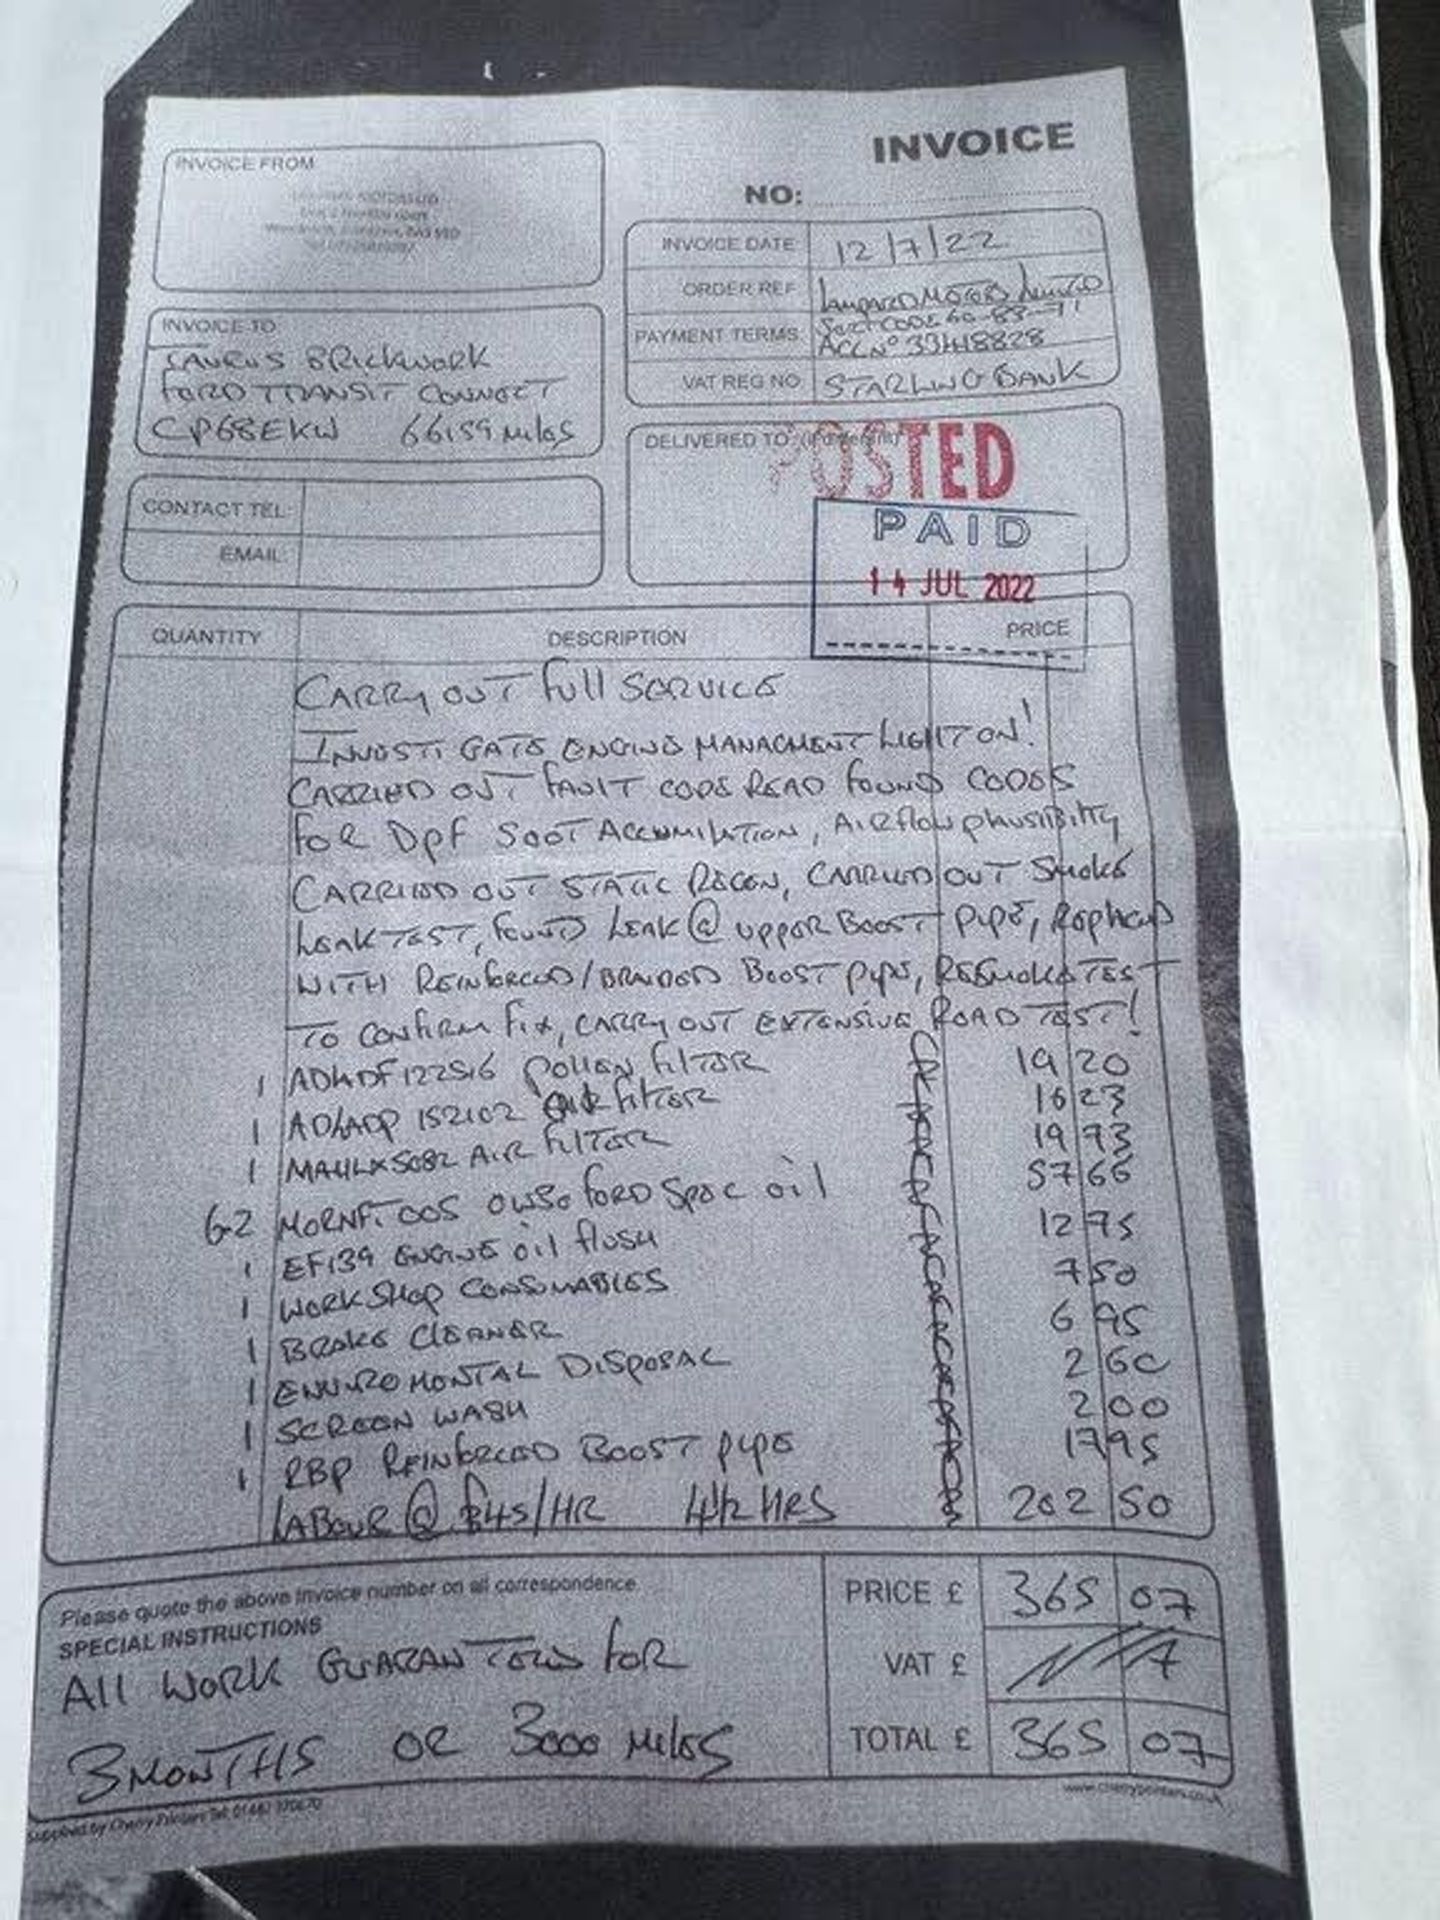 INVOICE
INVOICE FROM
NO:
INVOICE DATE 12/7/22
ORDER REF LAMPARD MOTORS LIMITED
PAYMENT TERMS SORT CODE 60-83-71
ACC Nº 39448828
VAT REG NO STARLING BANK
INVOICE TO
BRICKWORK
FORD TRANSIT CONNECT
CP68EKW 66159 MILES
DELIVERED TO
POSTED
PAID
14 JUL 2022
CONTACT TEL
EMAIL
QUANTITY DESCRIPTION PRICE
CARRY OUT FULL SERVICE
INVESTIGATE ENGINE MANAGMENT LIGHT ON!
CARRIED OUT FAULT CODE READ FOUND CODES
FOR DPF SOOT ACCUMILATION, AIRFLOW PLAUSIBILITY
CARRIED OUT STATIC REGEN, CARRIED OUT SMOKE
LEAK TEST, FOUND LEAK @ UPPER BOOST PIPE, REPLACED
WITH REINFORCED/BRAIDED BOOST PIPE, RESMOKE TEST
TO CONFIRM FIX, CARRY OUT EXTENSIVE ROAD TEST!
1 POLLEN FILTER 19 20
1 FILTER 16 23
1 AIR FILTER 19 93
6.2 0W30 FORD SPEC OIL 57 66
1 EF139 ENGINE OIL FLUSH 12 95
1 WORKSHOP CONSUMABLES 7 50
1 BRAKE CLEANER 6 95
1 ENVIROMENTAL DISPOSAL 2 60
1 SCREEN WASH 2 00
1 RBP REINFORCED BOOST PIPE 17 95
LABOUR @ £45/HR 4 1/2 HRS 202 50
Please quote the above invoice number on all correspondence
SPECIAL INSTRUCTIONS
ALL WORK GUARANTEED FOR
3 MONTHS OR 3000 MILES
PRICE £ 365 07
VAT £ N/A
TOTAL £ 365 07
Supplied by Cherry Printers Tel:
www.cherryprinters.co.uk